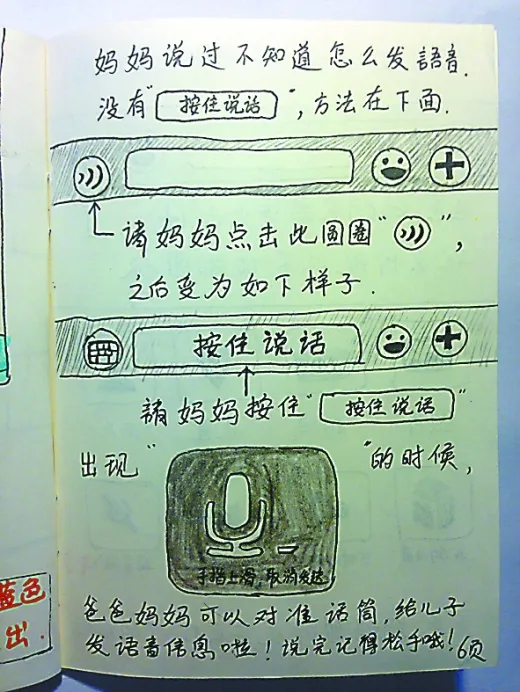 妈妈说过不知道怎么发語音.
没有"按住说话",方法在下面.
請妈妈点击此圆圈" ",
之后变为如下样子.
按住说话
請妈妈按住"按住说话"
出现" "的时候,
手指上滑,取消发送
爸爸妈妈可以对准话筒,给儿子
发语音信息啦!说完记得松手哦!
6页
蓝色
出.